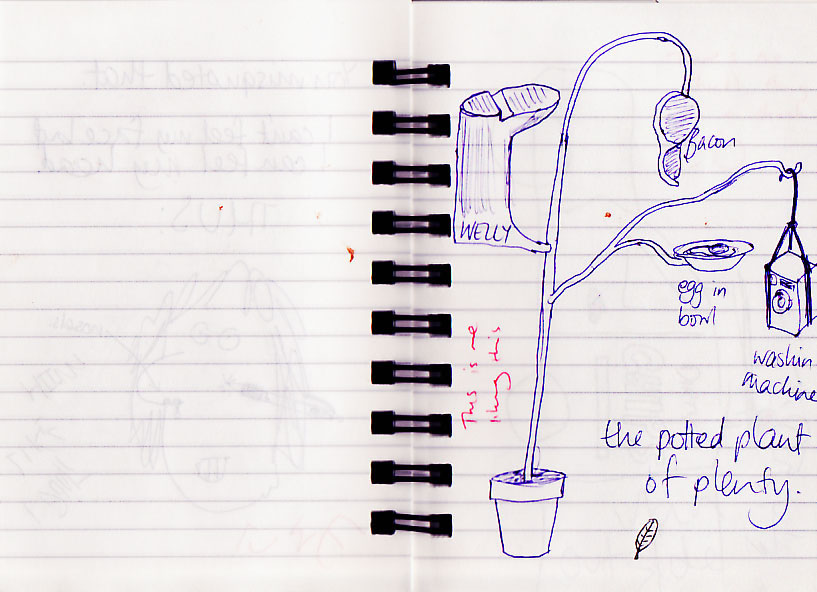 Bacon
WELLY
egg in
bowl
washin
machine
This is me
liking this
the potted plant
of plenty.